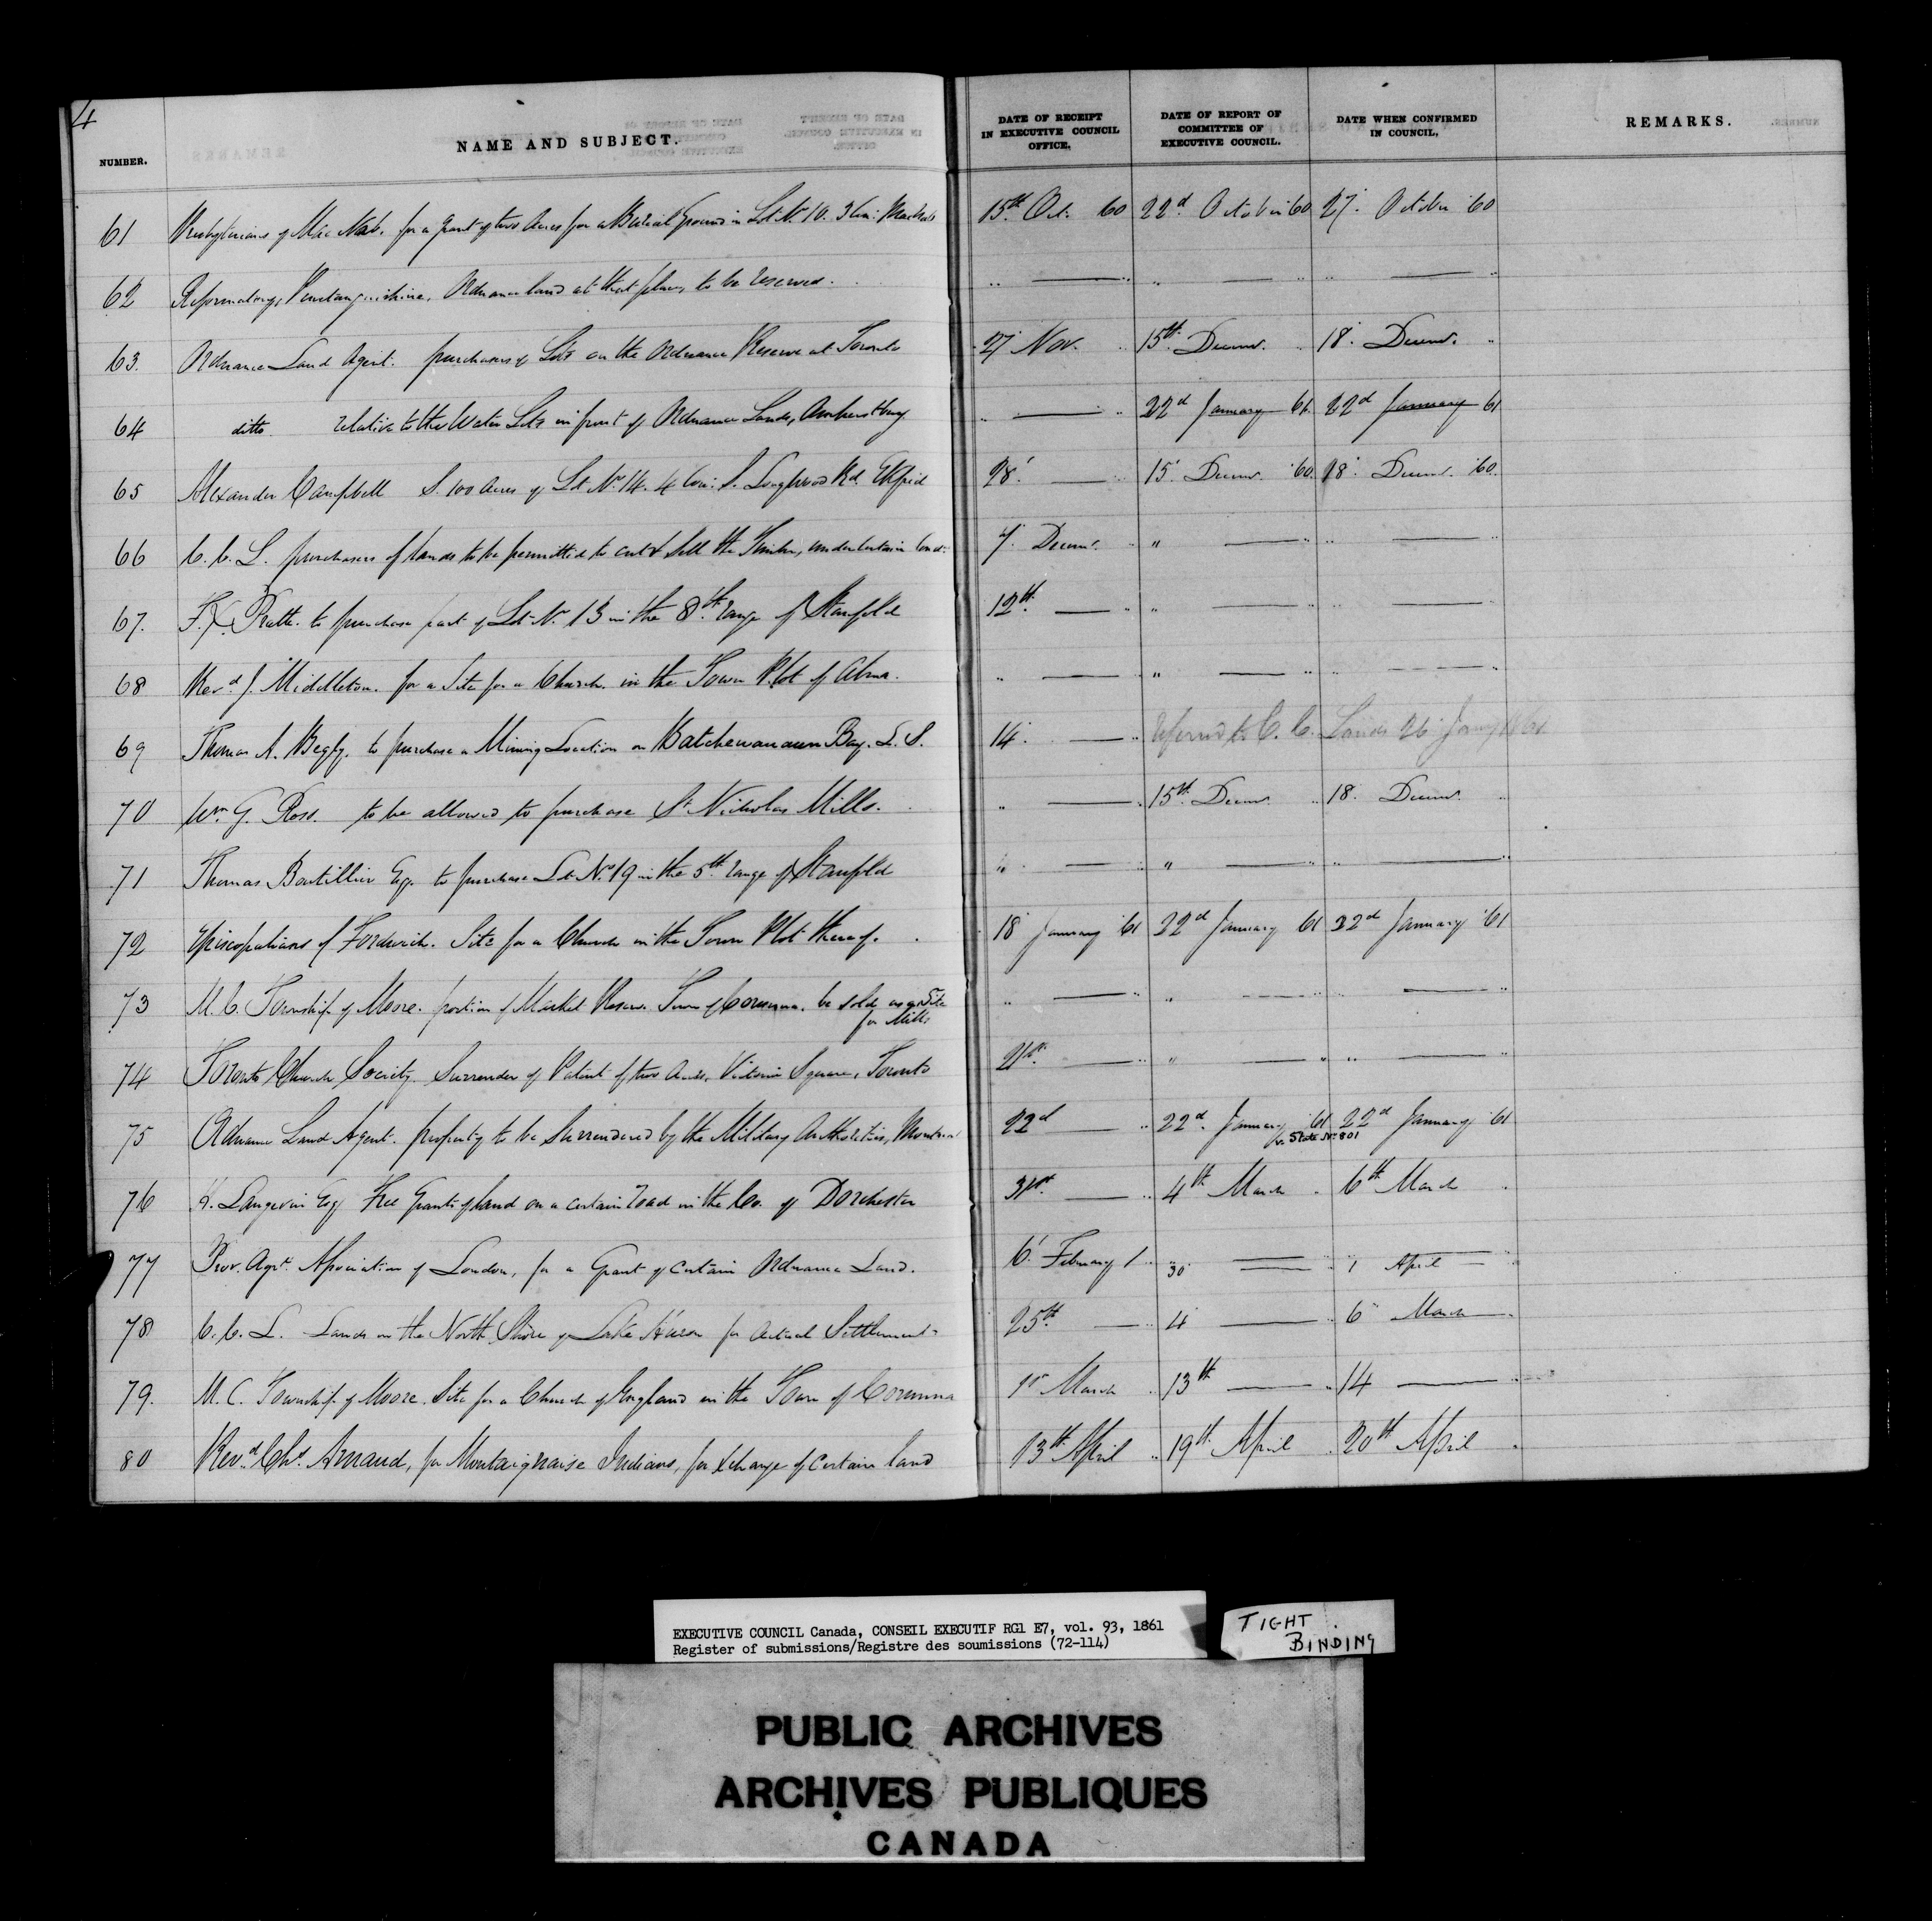 4
NUMBER. NAME AND SUBJECT. DATE OF RECEIPT IN EXECUTIVE COUNCIL OFFICE. DATE OF REPORT OF COMMITTEE OF EXECUTIVE COUNCIL. DATE WHEN CONFIRMED IN COUNCIL. REMARKS.
61 Presbyterians of Mac Nab. for a grant of two Acres for a Burial Ground in Lot No 10. 3 Con: 15th Oct. 60 22d October 60 27. October 60
62 Reformatory, Penetanguishine, Ordnance land at that place, to be reserved. " — " " — " " — "
63. Ordnance Land Agent. purchasers of Lots on the Ordnance Reserve at Toronto 27 Nov. " 15th Decemr. " 18. Decemr. "
64 ditto relative to the Water Lots in front of Ordnance Lands, Amherstburg " — " 22d January 61. 22d January 61
65 Alexander Campbell S. 100 Acres of Lot No 14. 4 Con: S. Longwood Rd. Ekfrid 28. — " 15. Decemr. 60. 18. Decemr. 60.
66 C. C. L. purchasers of lands to be permitted to cut & sell the Timber, under certain Cond: 7. Decemr. " " — " " — "
67. F. X. Pratte. to purchase part of Lot No. 13 in the 8th range of Stanfold 12th. — " " — " " — "
68 Revd. J. Middleton. for a Site for a Church. in the Town Plot of Alma. " — " " — " " — "
69 Thomas A. Begly. to purchase a Mining Location on Batchewanaun Bay. L. S. 14. — " Referred to C. C. Lands 26 Jany 1861
70 Wm. G. Ross. to be allowed to purchase St Nicholas Mills. " — " 15th. Decemr. " 18. Decemr. "
71 Thomas Boutillier Esq. to purchase Lot No. 19 in the 5th range of Stanfold " — " " — " " — "
72 Episcopalians of Fordwich. Site for a Church in the Town Plot thereof. 18 January 61 22d January 61 22d January 61
73 M. C. Township of Moore. portion of Market Reserve Town of Corunna. be sold as a Site " — " " — " " — "
for Mills
74 Toronto Church Society. Surrender of Patent of two Acres, Victoria Square, Toronto 21st. — " " — " " — "
75 Ordnance Land Agent. property to be Surrendered by the Military Authorities, Montreal 22d — " 22d. January 61 22d January 61
v. State No 801
76 H. Langevin Esq Free Grants of land on a certain road in the Co. of Dorchester 31st. — " 4th March " 6th March "
77 Prov. Agrl. Association of London, for a Grant of certain Ordnance Land. 6. February 1 " 30 — " " 1 April — "
78 C. C. L. Lands on the North Shore of Lake Huron for Actual Settlement 25th. — " 4 — " 6 March "
79. M. C. Township of Moore. Site for a Church of England in the Town of Corunna 1st March " 13th — " 14 — "
80 Revd. Chs. Arnaud, for Montaignaise Indians, for exchange of certain land 13th April " 19th April " 20th April "
EXECUTIVE COUNCIL Canada, CONSEIL EXECUTIF RG1 E7, vol. 93, 1861
Register of submissions/Registre des soumissions (72-114)
TIGHT
BINDING
PUBLIC ARCHIVES
ARCHIVES PUBLIQUES
CANADA